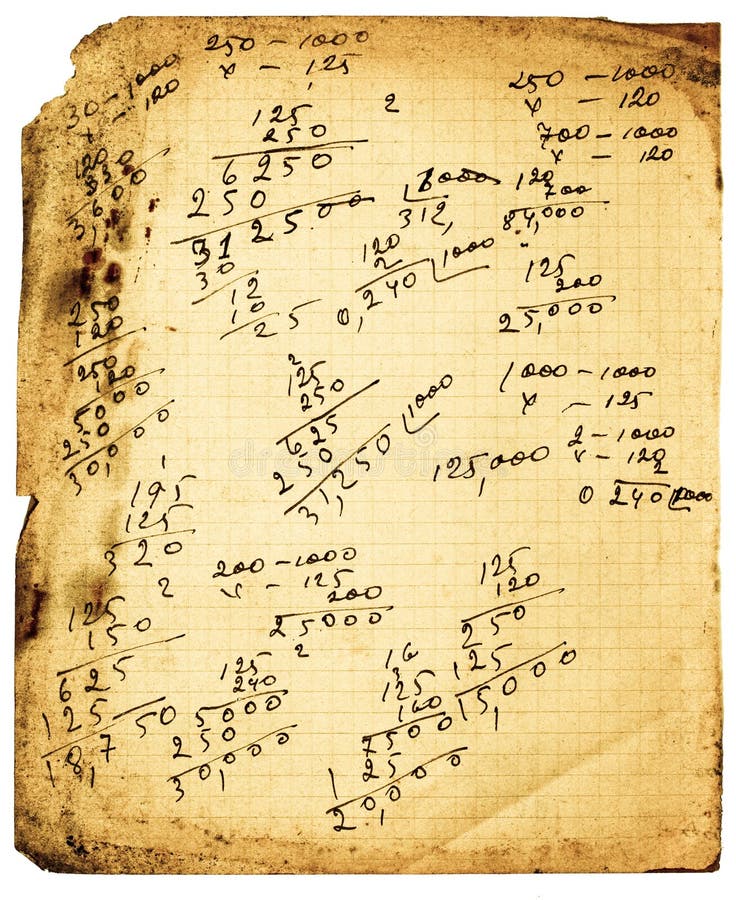 250 - 1000
x - 125
125
250
6250
250
312500
30
12
10
25
2
1000
312,
30 - 1000
x - 120
120
3600
250 - 1000
x - 120
700 - 1000
x - 120
120
700
84,000
120
2
0,240
1000
125
200
25,000
250
120
250
120
5000
250
30,000
2
125
250
625
250
31,250
1000
1000 - 1000
x - 125
125,000
2 - 1000
x - 120
2
0 240
1000
195
125
320
200 - 1000
x - 125
200
25000
125
120
250
125
15,000
2
125
150
625
125
18,750
2
125
240
5000
250
30,000
16
3
125
160
7500
125
20,000
dreamstime